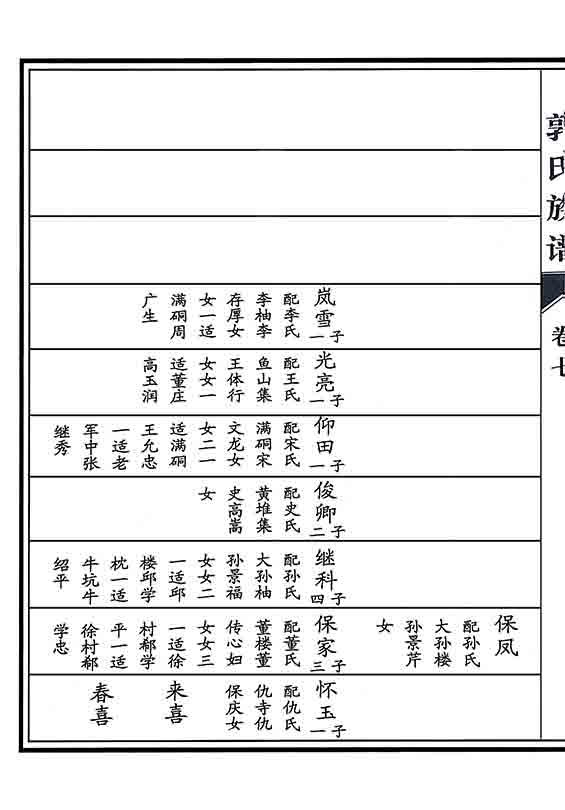 郭氏族谱
卷七
岚雪
一子
配李氏
李柚李
存厚女
女一适
满硐周
广生
光亮
一子
配王氏
鱼山集
王体行
女女一
适董庄
高玉润
仰田
一子
配宋氏
满硐宋
文龙女
女二一
适满硐
王允忠
一适老
军中张
继秀
俊卿
二子
配史氏
黄堆集
史高嵩
女
继科
四子
配孙氏
大孙柚
孙景福
女女二
一适邱
楼邱学
枕一适
牛坑牛
绍平
保凤
配孙氏
大孙楼
孙景芹
女
保家
三子
配董氏
董楼董
传心妇
女女三
一适徐
村郗学
平一适
徐村郗
学忠
怀玉
一子
配仇氏
仇寺仇
保庆女
来喜
春喜